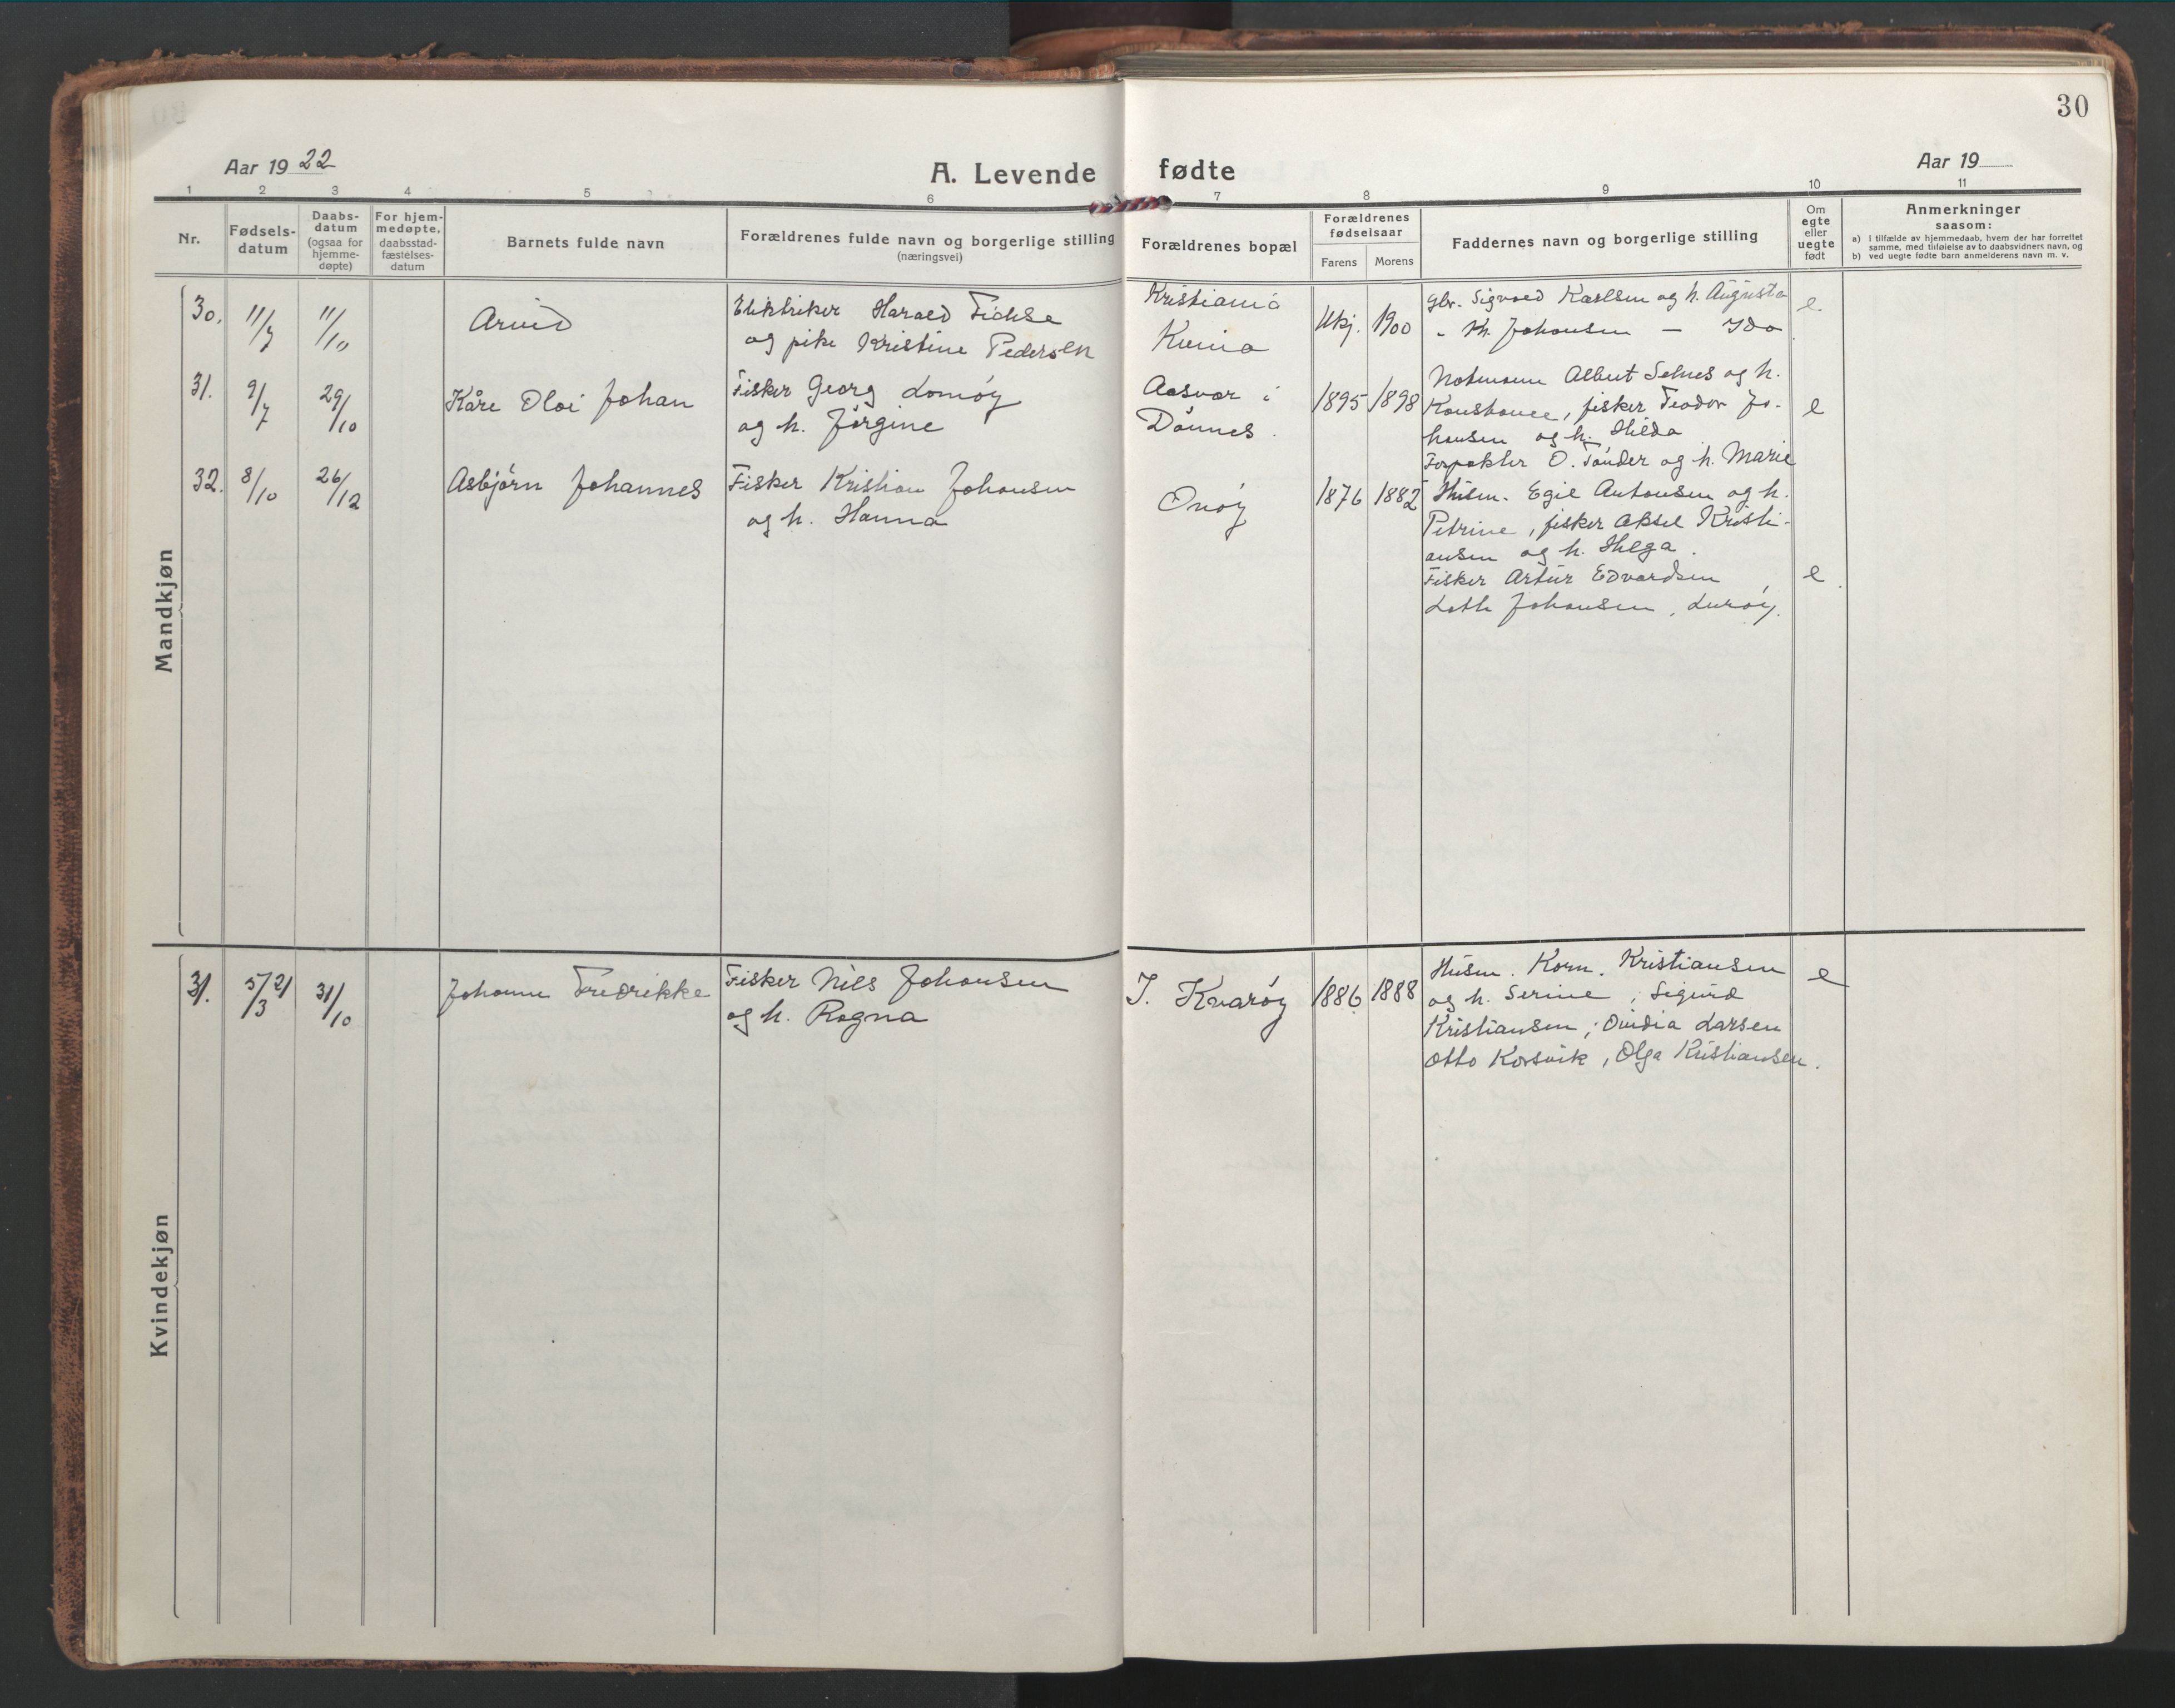 30
Aar 1922
A. Levende fødte
Aar 19
1 2 3 4 5 6 7 8 9 10 11
Nr.
Fødsels-
datum
Daabs-
datum
(ogsaa for
hjemme-
døpte)
For hjem-
medøpte,
daabsstad-
fæstelses-
datum
Barnets fulde navn
Forældrenes fulde navn og borgerlige stilling
(næringsvei)
Forældrenes bopæl
Forældrenes
fødselsaar
Farens Morens
Faddernes navn og borgerlige stilling
Om
egte
eller
uegte
født
Anmerkninger
saasom:
a) i tilfælde av hjemmedaab, hvem der har forrettet
samme, med tilføielse av to daabsvidners navn, og
b) ved uegte fødte barn anmelderens navn m. v.
Mandkjøn
30. 11/7 11/10
Arvid
Elektriker Harald
og pike Kristine Pedersen
Kristiania
Kvina
Ukj. 1900
Gbr. Sigvald Karlsen og h. Augusta
" Kr. Johansen — Ida
e.
31. 9/7 29/10
Kåre Olai Johan
Fisker Georg Lomøy
og h. Jörgine
Aasvær i
Dönnes.
1895 1898
Notmann Albert Selnes og h.
Konstance, fisker Teodor Jo-
hansen og h. Hilda
Forpakter O. Tönder og h. Marie
e
32. 8/10 26/12
Asbjörn Johannes
Fisker Kristian Johansen
og h. Hanna
Onöy
1876 1882
Húsm. Egil Antonsen og h.
Petrine, fisker Aksel Kristi-
ansen og h. Helga.
Fisker Artúr Edvardsen,
Loth Johansen, Luröy.
e.
Kvindekjøn
31. 5/3 21 31/10
Johanne Fredrikke
Fisker Nils Johansen
og h. Ragna
I. Kvaröy
1886 1888
Húsm. Korn. Kristiansen
og h. Serine; Sigurd
Kristiansen; Ovidia Larsen
Otto Korsvik, Olga Kristiansen.
e